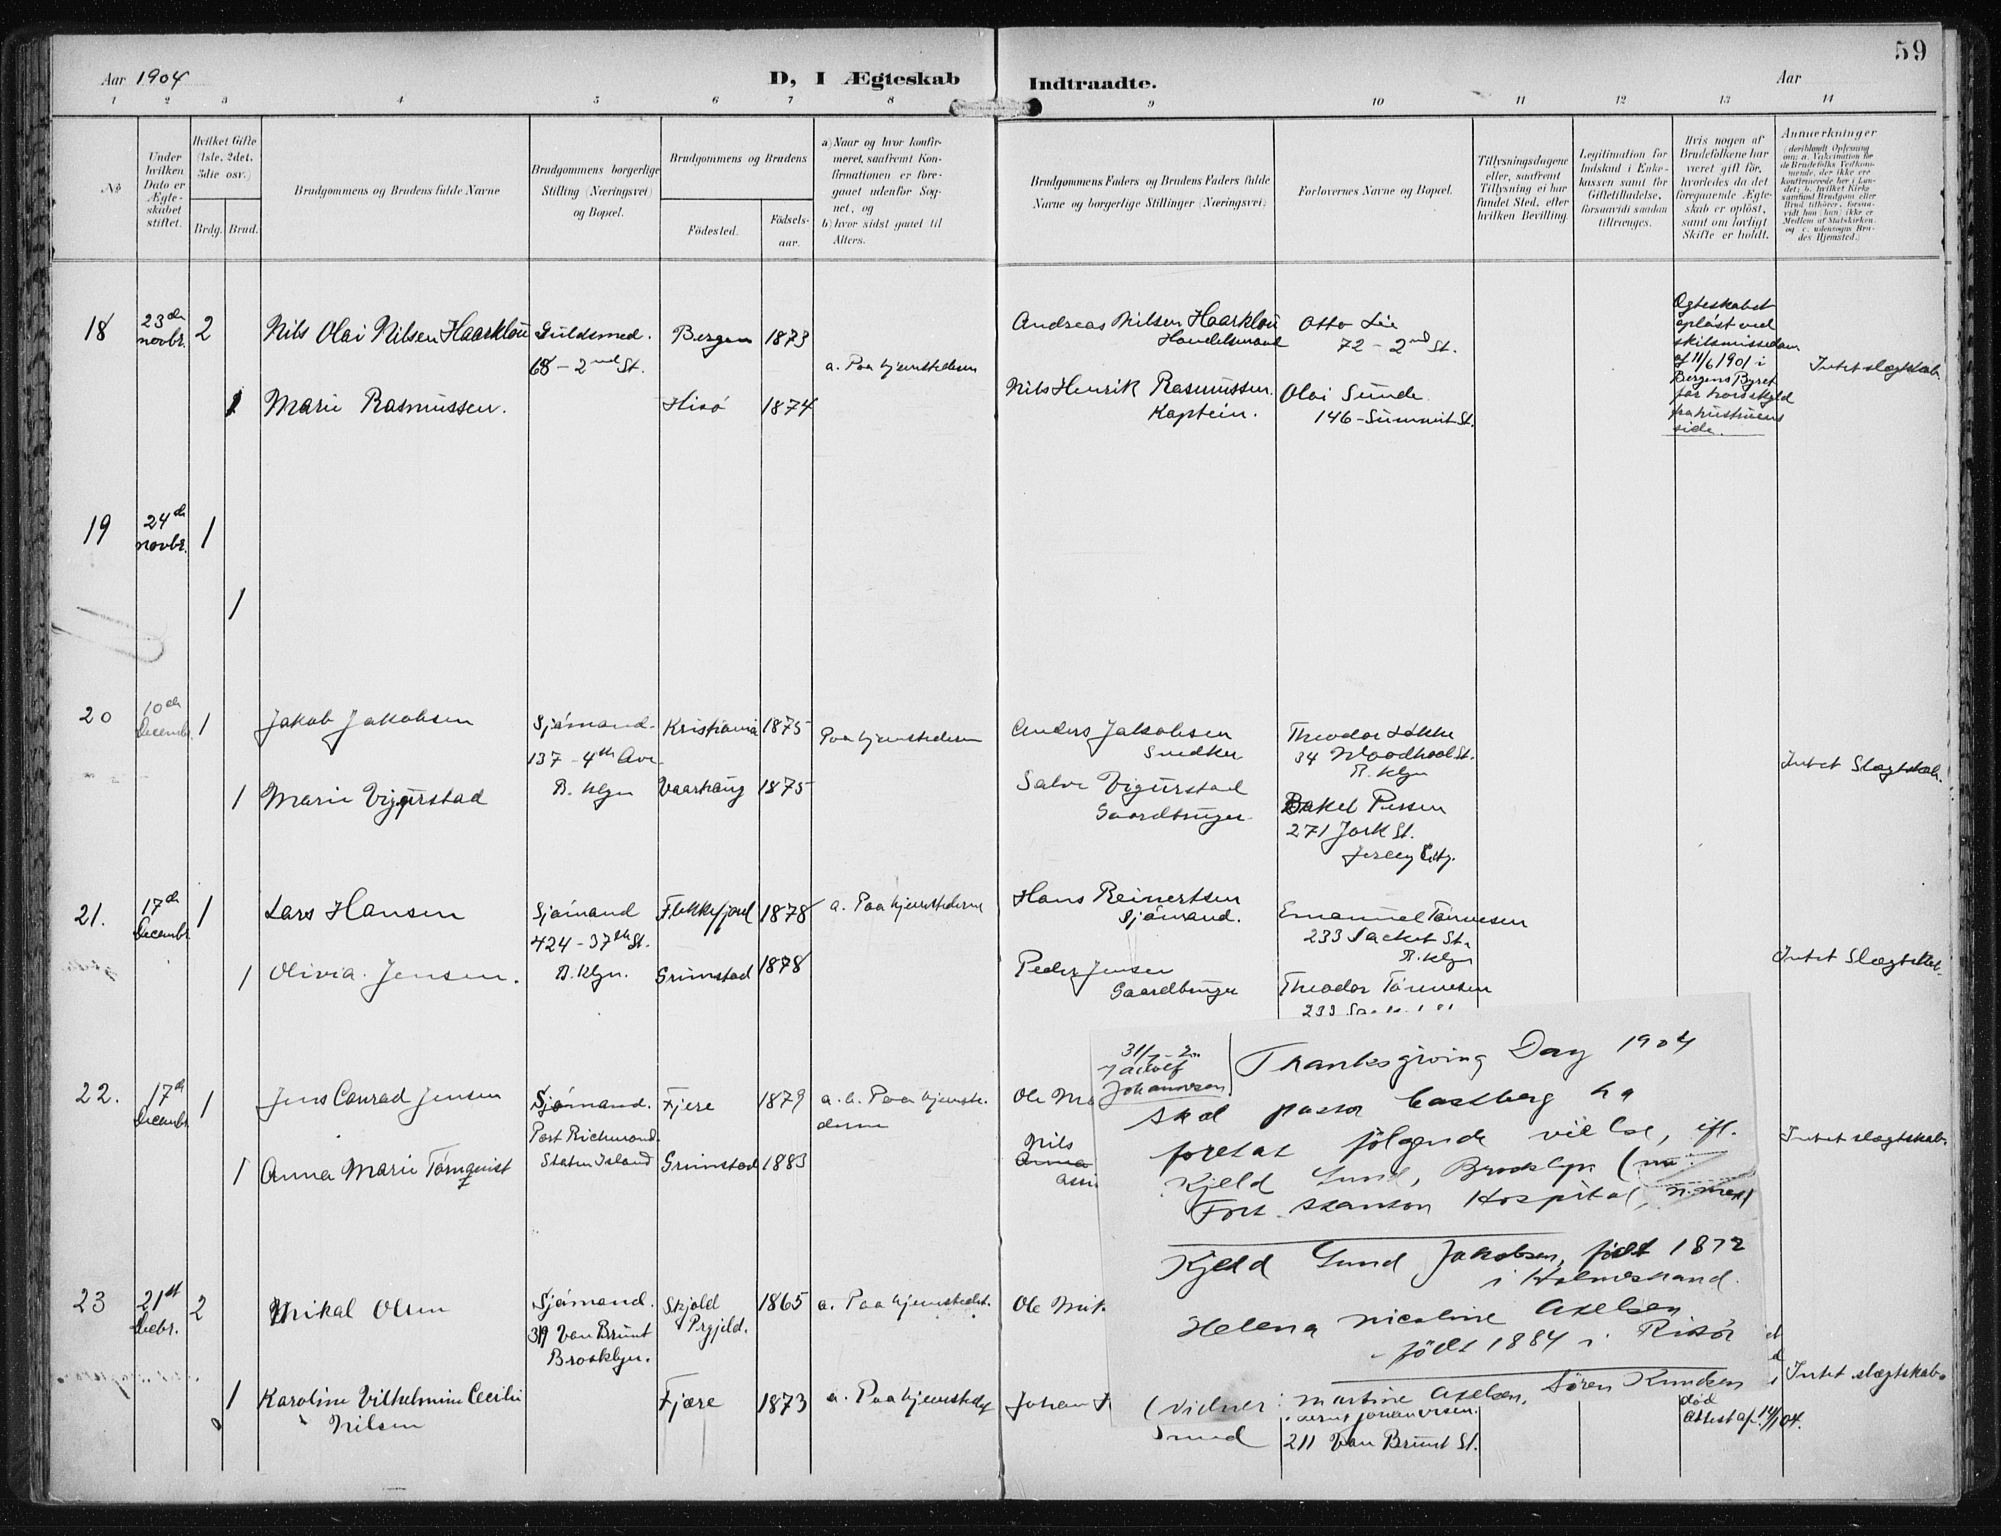 59
Aar 1904
D, I Ægteskab Indtraadte.
Aar
1 2 3 4 5 6 7 8 9 10 11 12 13 14
No
Under hvilken Dato er Ægteskabet stiftet.
Hvilket Gifte (1ste, 2det, 3die osv.)
Brdg. Brud.
Brudgommens og Brudens fulde Navne
Brudgommens borgerlige Stilling (Næringsvei) og Bopæl.
Brudgommens og Brudens
Fødested.
Fødsels-aar.
a) Naar og hvor konfirmeret, saafremt Konfirmationen er foregaaet udenfor Sognet, og
b) hvor sidst gaaet til Alters.
Brudgommens Faders og Brudens Faders fulde Navne og borgerlige Stillinger (Næringsvei)
Forlovernes Navne og Bopæl.
Tillysningsdagene eller, saafremt Tillysning ei har fundet Sted, efter hvilken Bevilling.
Legitimation for Indskud i Enkekassen samt for Giftetilladelse, forsaavidt saadan tiltrænges.
Hvis nogen af Brudefolkene har været gift før, hvorledes da det foregaaende Ægteskab er opløst, samt om lovligt Skifte er holdt.
Anmerkninger
18
23de novbr.
2
Nils Olai Nilsen Haarklou
Guldsmed.
68 - 2nd St.
Bergen
1873
a. Paa hjemstederne
Andreas Nilsen Haarklou
Handelsmand
Otto Lie
72 - 2nd St.
Egteskabet
opløst ved
skilsmissedom
af 11/6 1901 i
Bergens Byret
for hor
fra hustruens
side.
Intet slægtskab.
1
Marie Rasmussen.
Hisø
1874
Nils Henrik Rasmussen.
Kaptein.
Olai Sunde.
146 - Summit St.
19
24de novbr.
1
1
20
10de Decembr.
1
Jakob Jakobsen
Sjømand.
137 - 4th Ave.
B. klyn
Kristiania
1875
Paa hjemstederne
Anders Jakobsen
Snedker
Theodor Løkke
34 St.
B. klyn
Intet Slægtskab.
1
Marie Vigerstad
1875
Salve Vigerstad
Gaardbruger.
271 York St.
Jersey City.
21.
17de Decembr
1
Lars Hansen
Sjømand
424 - 37th St.
B. klyn.
Flekkefjord
1878
a. Paa hjemstederne
Hans Reinertsen
Sjømand.
Emanuel Tønnesen
233 Sacket St.
B. klyn
Intet Slægtskab.
1
Olivia Jensen.
Grimstad
1878
Peder Jensen
Gaardbruger
Theodor Tønnesen
233
22.
17de Decembr
1
Jens Conrad Jensen
Sjømand.
Port Richmond.
Staten Island
Fjere
1879
a. b. Paa hjemste-
derne
Ole
Intet slægtskab.
1
Anna Marie Tørnquist
Grimstad
1883
Nils
Anna
23
21st Decbr.
2
Mikal Olsen
Sjømand.
319 Van Brunt
Brooklyn.
Skjold
Prgjeld.
1865
a. Paa hjemstedet.
Ole Mik
Intet slægtskab.
1
Karoline Vilhelmine Cecilie
Nilsen
Fjære
1873
a. Paa hjemstedet
Johan
211 Van Brunt St.
død
Attest af 14/1 04.
Johannesen
Thanksgiving Day 1904
skal pastor Castberg ha
foretat følgende vielse, ifl.
Kjeld Lund, Brooklyn (nu
Fort Stanton Hospital, n. mex)
Kjeld Lund Jakobsen, født 1872
i Holmestrand.
Helena Nicoline Axelsen
- født 1884 i Risør
(Vidner: Martine Axelsen, Søren Knudsen